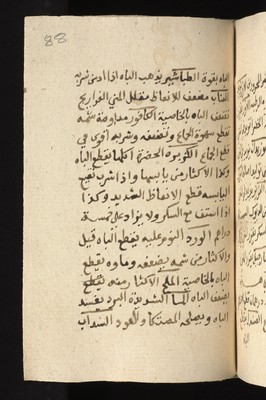 88
الباه بقوة الطباشير يذهب الباه اذا ادمن شربه
العناب مضعف للانعاظ مقلل للمني الفرايح
تضعف الباه بالخاصية الكافور مداومة شمه
تقطع شهوة الجماع وتضعفه وشربه اقوى في
قطع الجماع الكزبرة الخضرة اكلها يقطع الباه
وكذا الاكثار من يابسها واذا شرب نقيع
اليابسه قطع الانعاظ الشديد وكذا
اذا استف مع السكر ولا يزاد على خمسة
دراهم الورد النوم عليه يقطع الباه قيل
والاكثار من شمه يضعفه وماوه يقطع
الباه بالخاصية الملح الاكثار منه يقطع
يضعف الباه الما الشديد البرد يفسد
الباه ويصلحه المصتكا والعود السداب